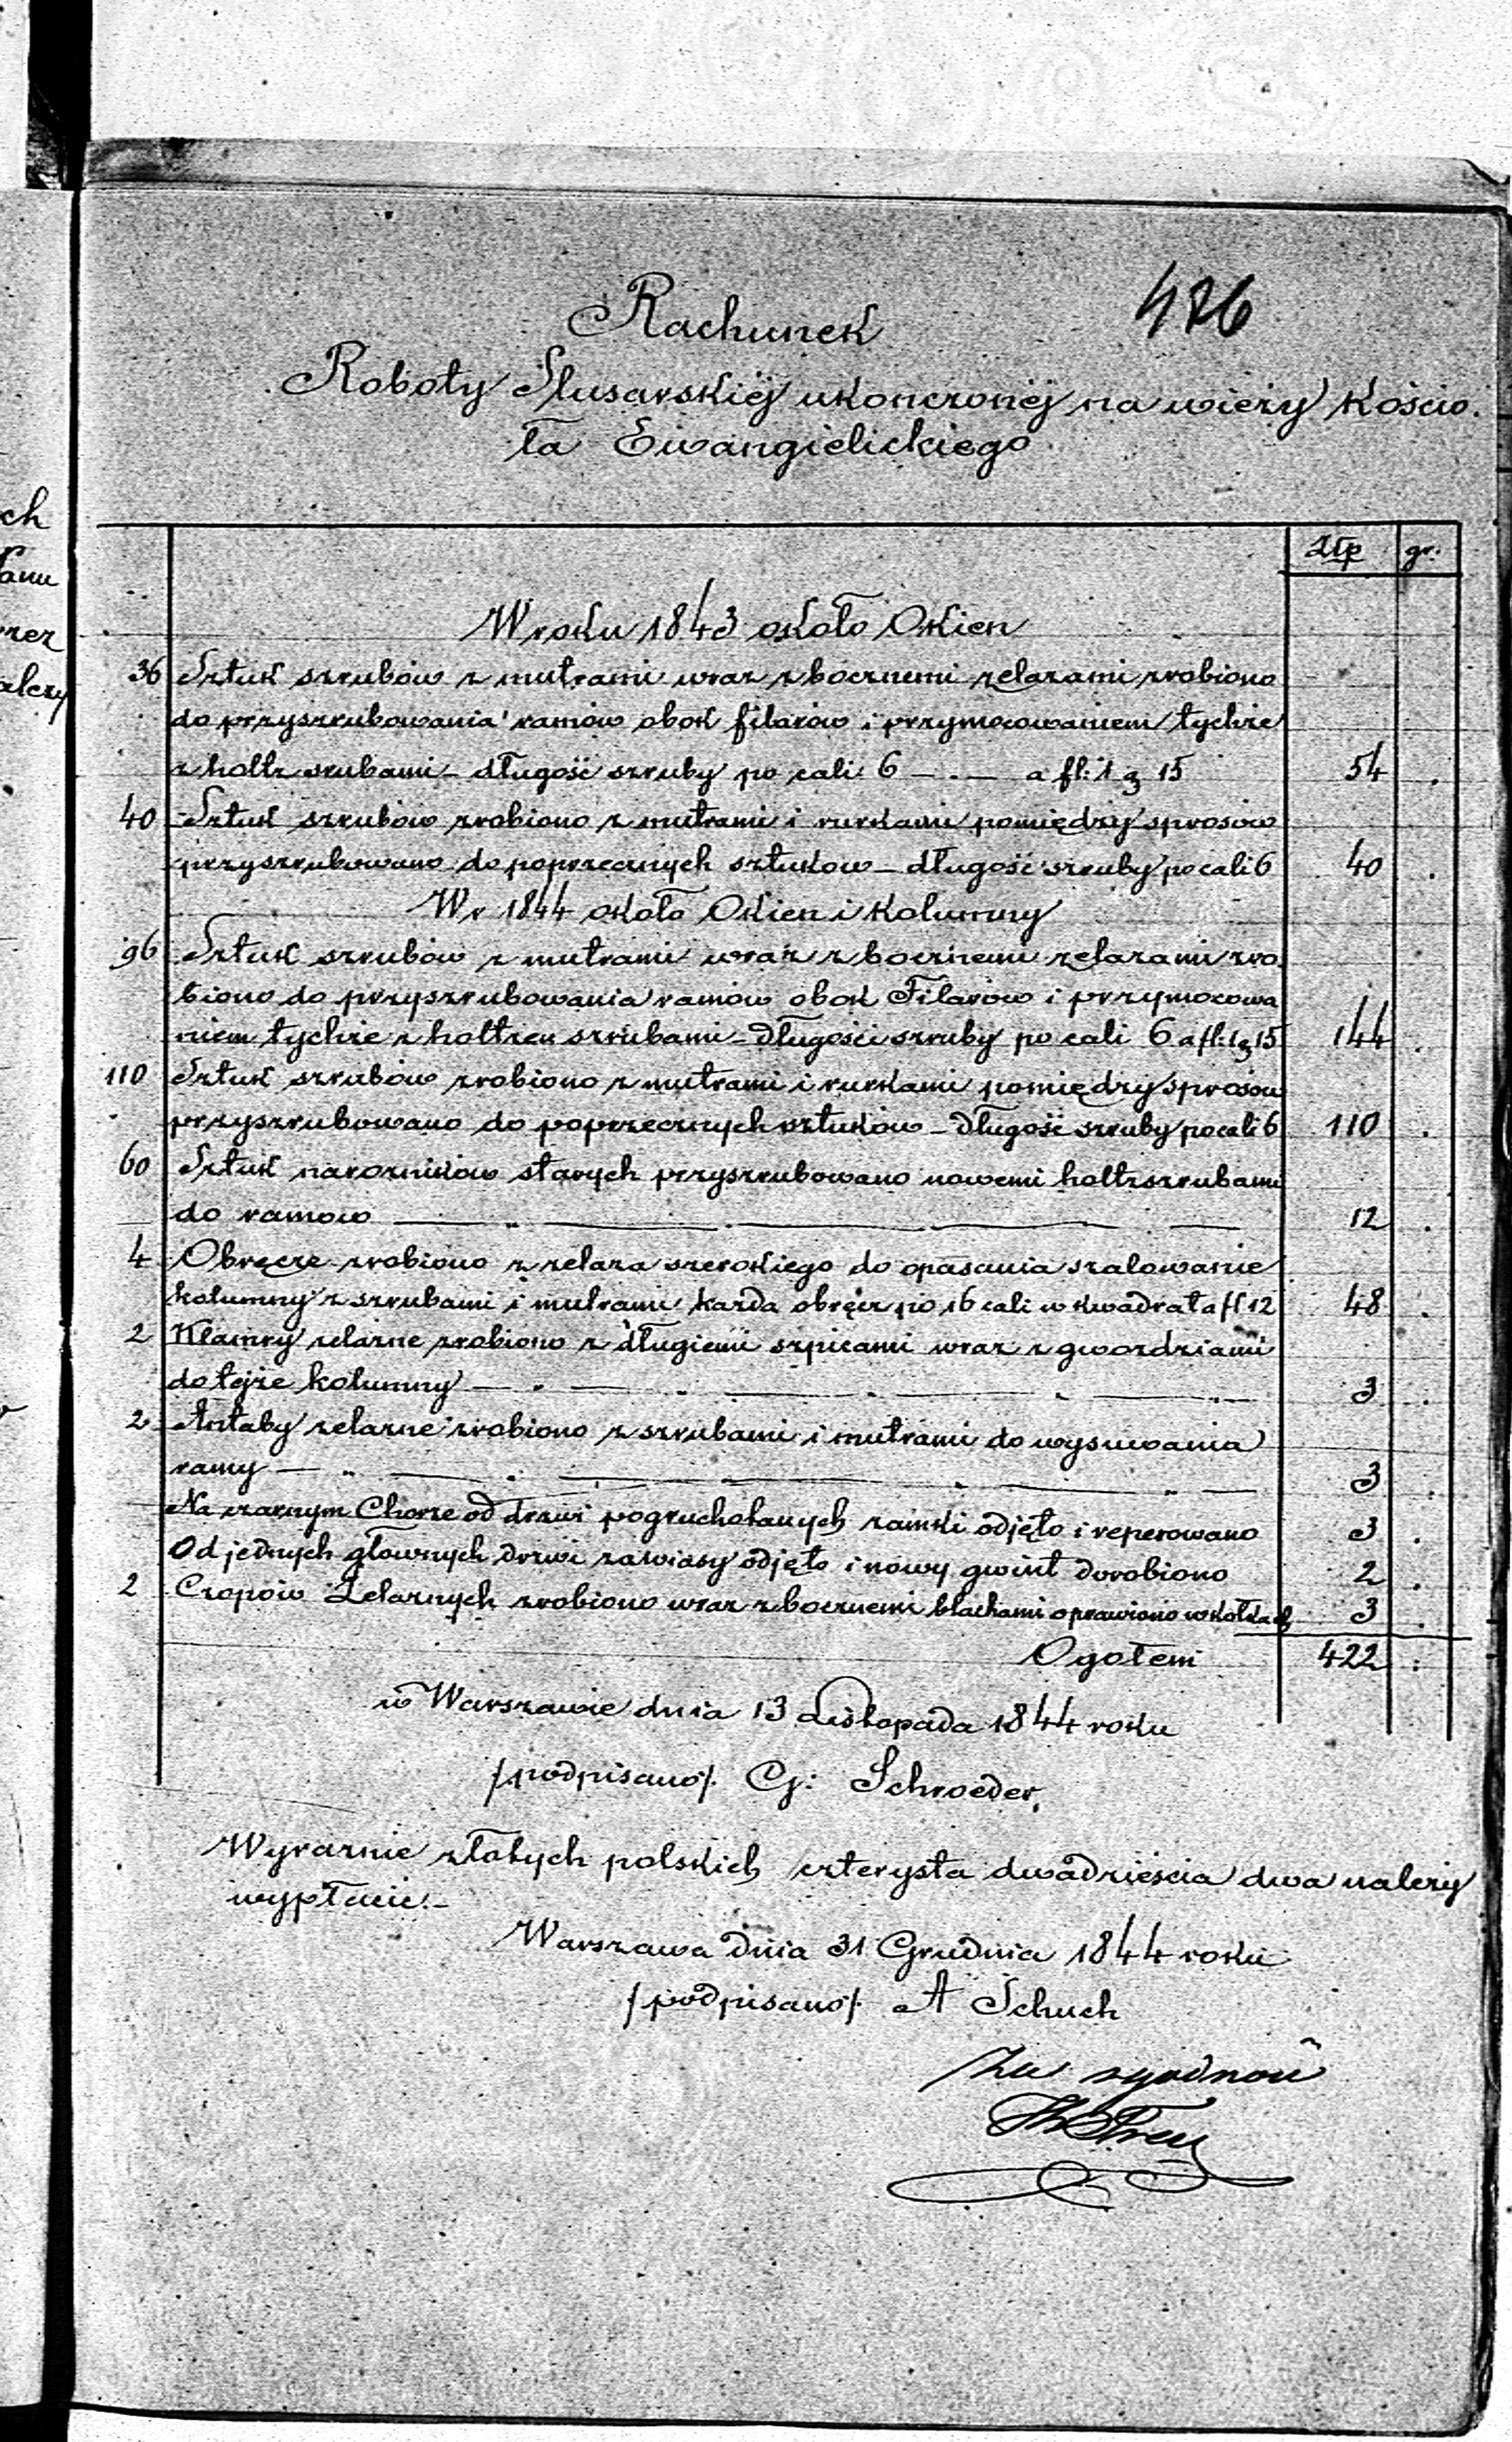 486
Rachunek
Roboty Slusarskiéj ukonczonéj na wieży Kościo.
ła Ewangielickiego
Złp gr.
W roku 1843 około Okien
36 Sztuk szrubów z mutrami wraz z bocznemi zelazami zrobiono
do przyszrubowania ramów obok filarów i przymocowaniem tychże
z holtz srubami – długość szruby po cali 6 — . — a fl: 1 g 15 54 .
40 Sztuk szrubów zrobiono z mutrami i rurkami pomiędzy sprosów
przyszrubowano do poprzecznych sztuków – długość szruby po cali 6 40 .
W r 1844 około Okien i Kolumny
96 Sztuk szrubów z mutrami wraz z bocznemi zelazami zro.
biono do przyszrubowania ramów obok Filarów i przymocowa
niem tychże z holtzen szrubami – długości szruby po cali 6 a fl: 1 g 15 144 .
110 Sztuk szrubów zrobiono z mutrami i rurkami pomiędzy sprosów
przyszrubowano do poprzecznych sztuków – długość szruby po cali 6 110 .
60 Sztuk narozników starych przyszrubowano nowemi holtzszrubami
do ramow 12 .
4 Obręcze zrobiono z zelaza szerokiego do opasania szalowanie
kolumny z szrubami i mutrami każda obręcz po 16 cali w kwadrat a fl 12 48 .
2 Klamry zelazne zrobiono z długiemi szpicami wraz z gwozdziami
do tejże kolumny 3 .
2 Antaby zelazne zrobiono z szrubami i mutrami do wysuwania
ramy 3 .
Na czarnym Chorze od drzwi pogruchotanych zamki odjęto i reperowano 3 .
Od jednych głownych drzwi zawiasy odjęto i nowy gwint dorobiono 2 .
2 Czopów Żelaznych zrobiono wraz z bocznemi blachami oprawiono w kołkach 3
Ogołem 422 .
w Warszawie dnia 13 Listopada 1844 roku
/podpisano/. G: Schroeder,
Wyraznie złotych polskich czterysta dwadzieścia dwa należy
wypłacić. –
Warszawa dnia 31 Grudnia 1844 roku
/podpisano/. A Schuch
Za zgodność